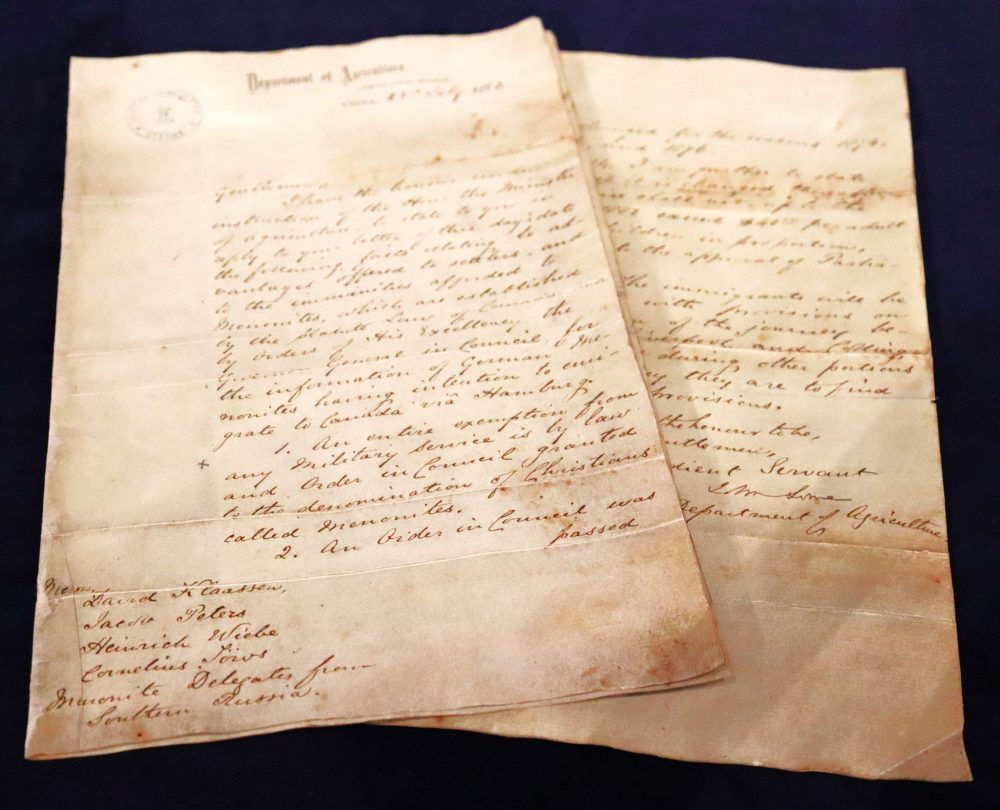 Department of Agriculture.
OTTAWA
Ottawa, 23rd July 1873
Gentlemen,
I have the honour under
instruction of the Hon. the Minister
of Agriculture to state to you in
reply to your letter of this day's date
the following facts relating to ad-
vantages offered to settlers, and
to the immunities afforded to
Menonites, which are established
by the Statute Law of Canada, and
by orders of His Excellency the
Governor General in Council for
the information of German Me-
nonites having intention to emi-
grate to Canada via Hamburg.
1. An entire exemption from
any Military Service is by law
and Order in Council granted
to the denomination of Christians
called Menonites.
2. An Order in Council was
passed
Mem.
David Klaassen,
Jacob Peters
Heinrich Wiebe
Cornelius Töws
Menonite Delegates from
Southern Russia.
for the seasons 1874,
and 1876
I am further to state
exceed $40.00 per adult
children in proportion,
the approval of Parlia-
The immigrants will be
with provisions on
of the journey be-
Liverpool and Collingwood
during other portions
they are to find
provisions.
the honour to be,
Gentlemen,
Obedient Servant
John Lowe
Department of Agriculture